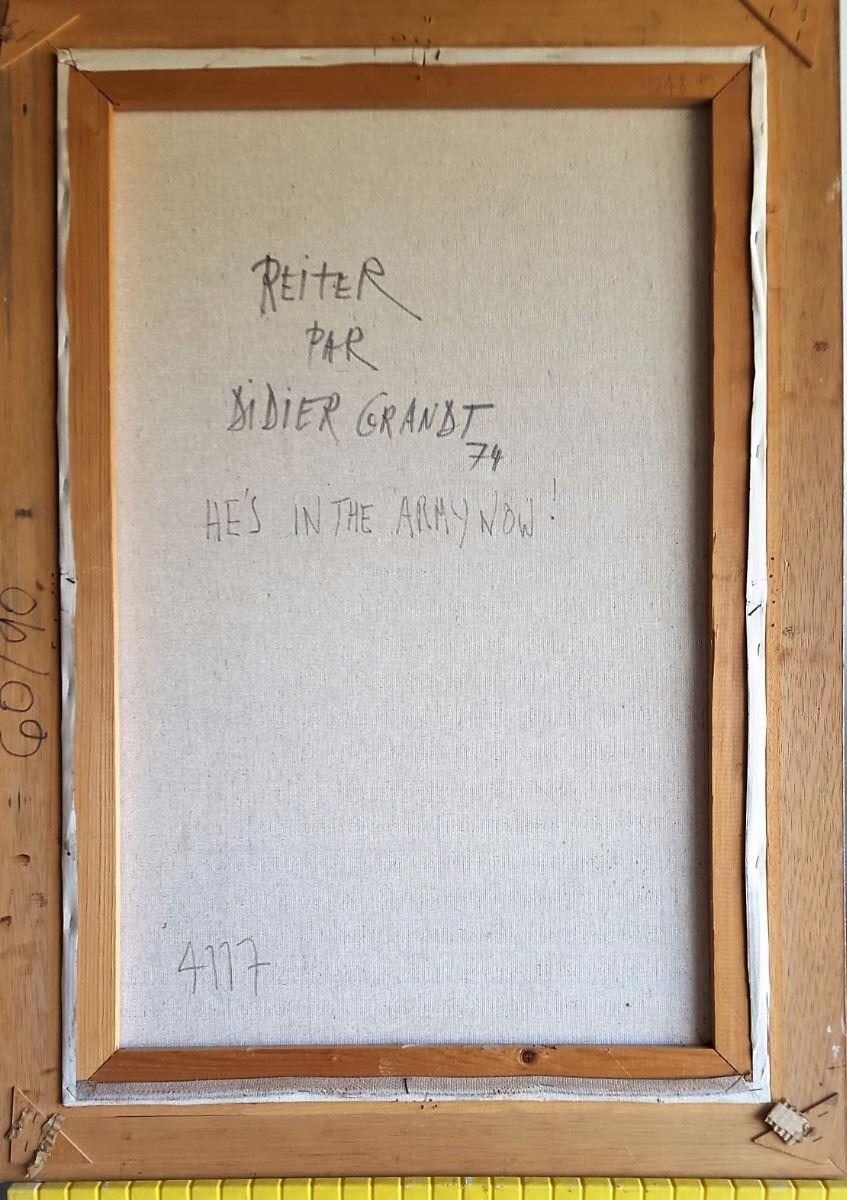 REiTER
PAR
DiDiER GRANDT
74
HE'S IN THE ARMY NOW!
4117
60/90